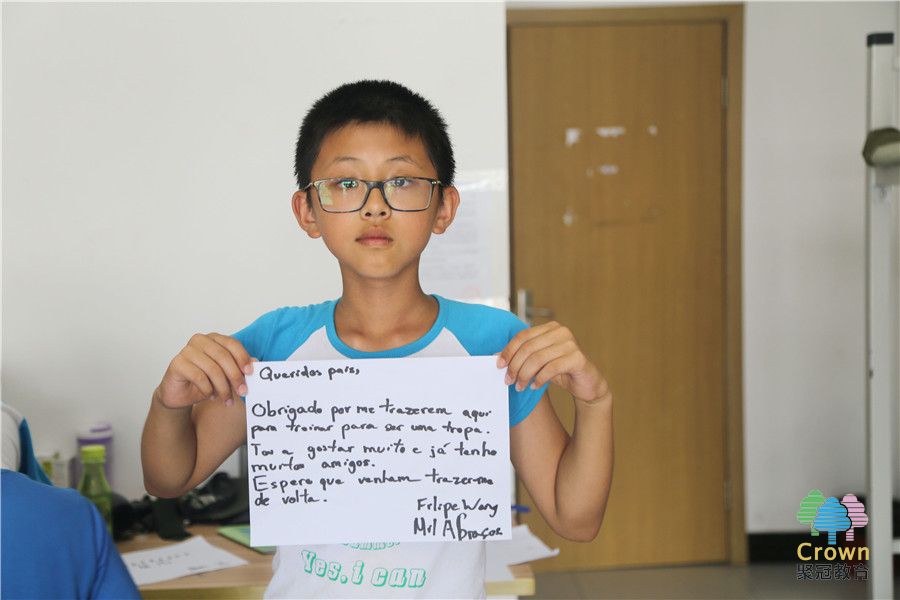 Queridos pais,
Obrigado por me trazerem aqui
para treinar para ser uma tropa.
Tou a gostar muito e já tenho
muitos amigos.
Espero que venham trazer-me
de volta.
Filipe Wang
Mil Abraços
Yes, I can
Crown
聚冠教育